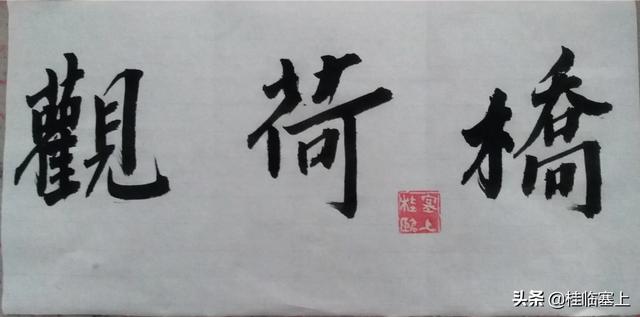 觀荷橋
塞上
桂臨
头条 @桂临塞上